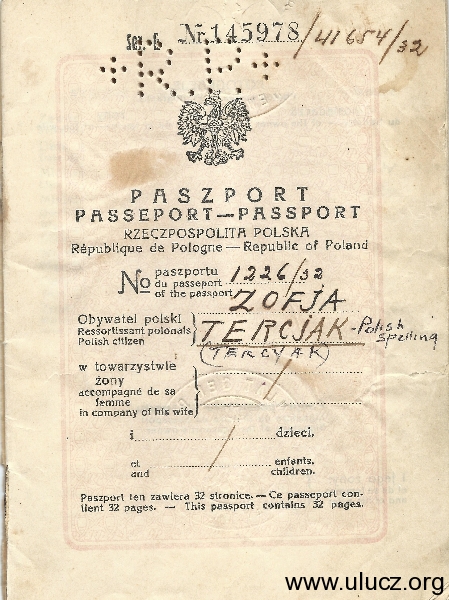 Ser. E Nr. 145978/41654/32
+R.P.+
PASZPORT
PASSEPORT—PASSPORT
RZECZPOSPOLITA POLSKA
République de Pologne — Republic of Poland
No paszportu
du passeport 1226/32
of the passport
ZOFJA
Obywatel polski
Ressortissant polonais TERCJAK - Polish
Polish citizen spelling
(TERCYAK)
w towarzystwie
żony
accompagné de sa
femme
in company of his wife
i dzieci.
et enfants.
and children.
Paszport ten zawiera 32 stronice. — Ce passeport con-
tient 32 pages. — This passport contains 32 pages.
www.ulucz.org